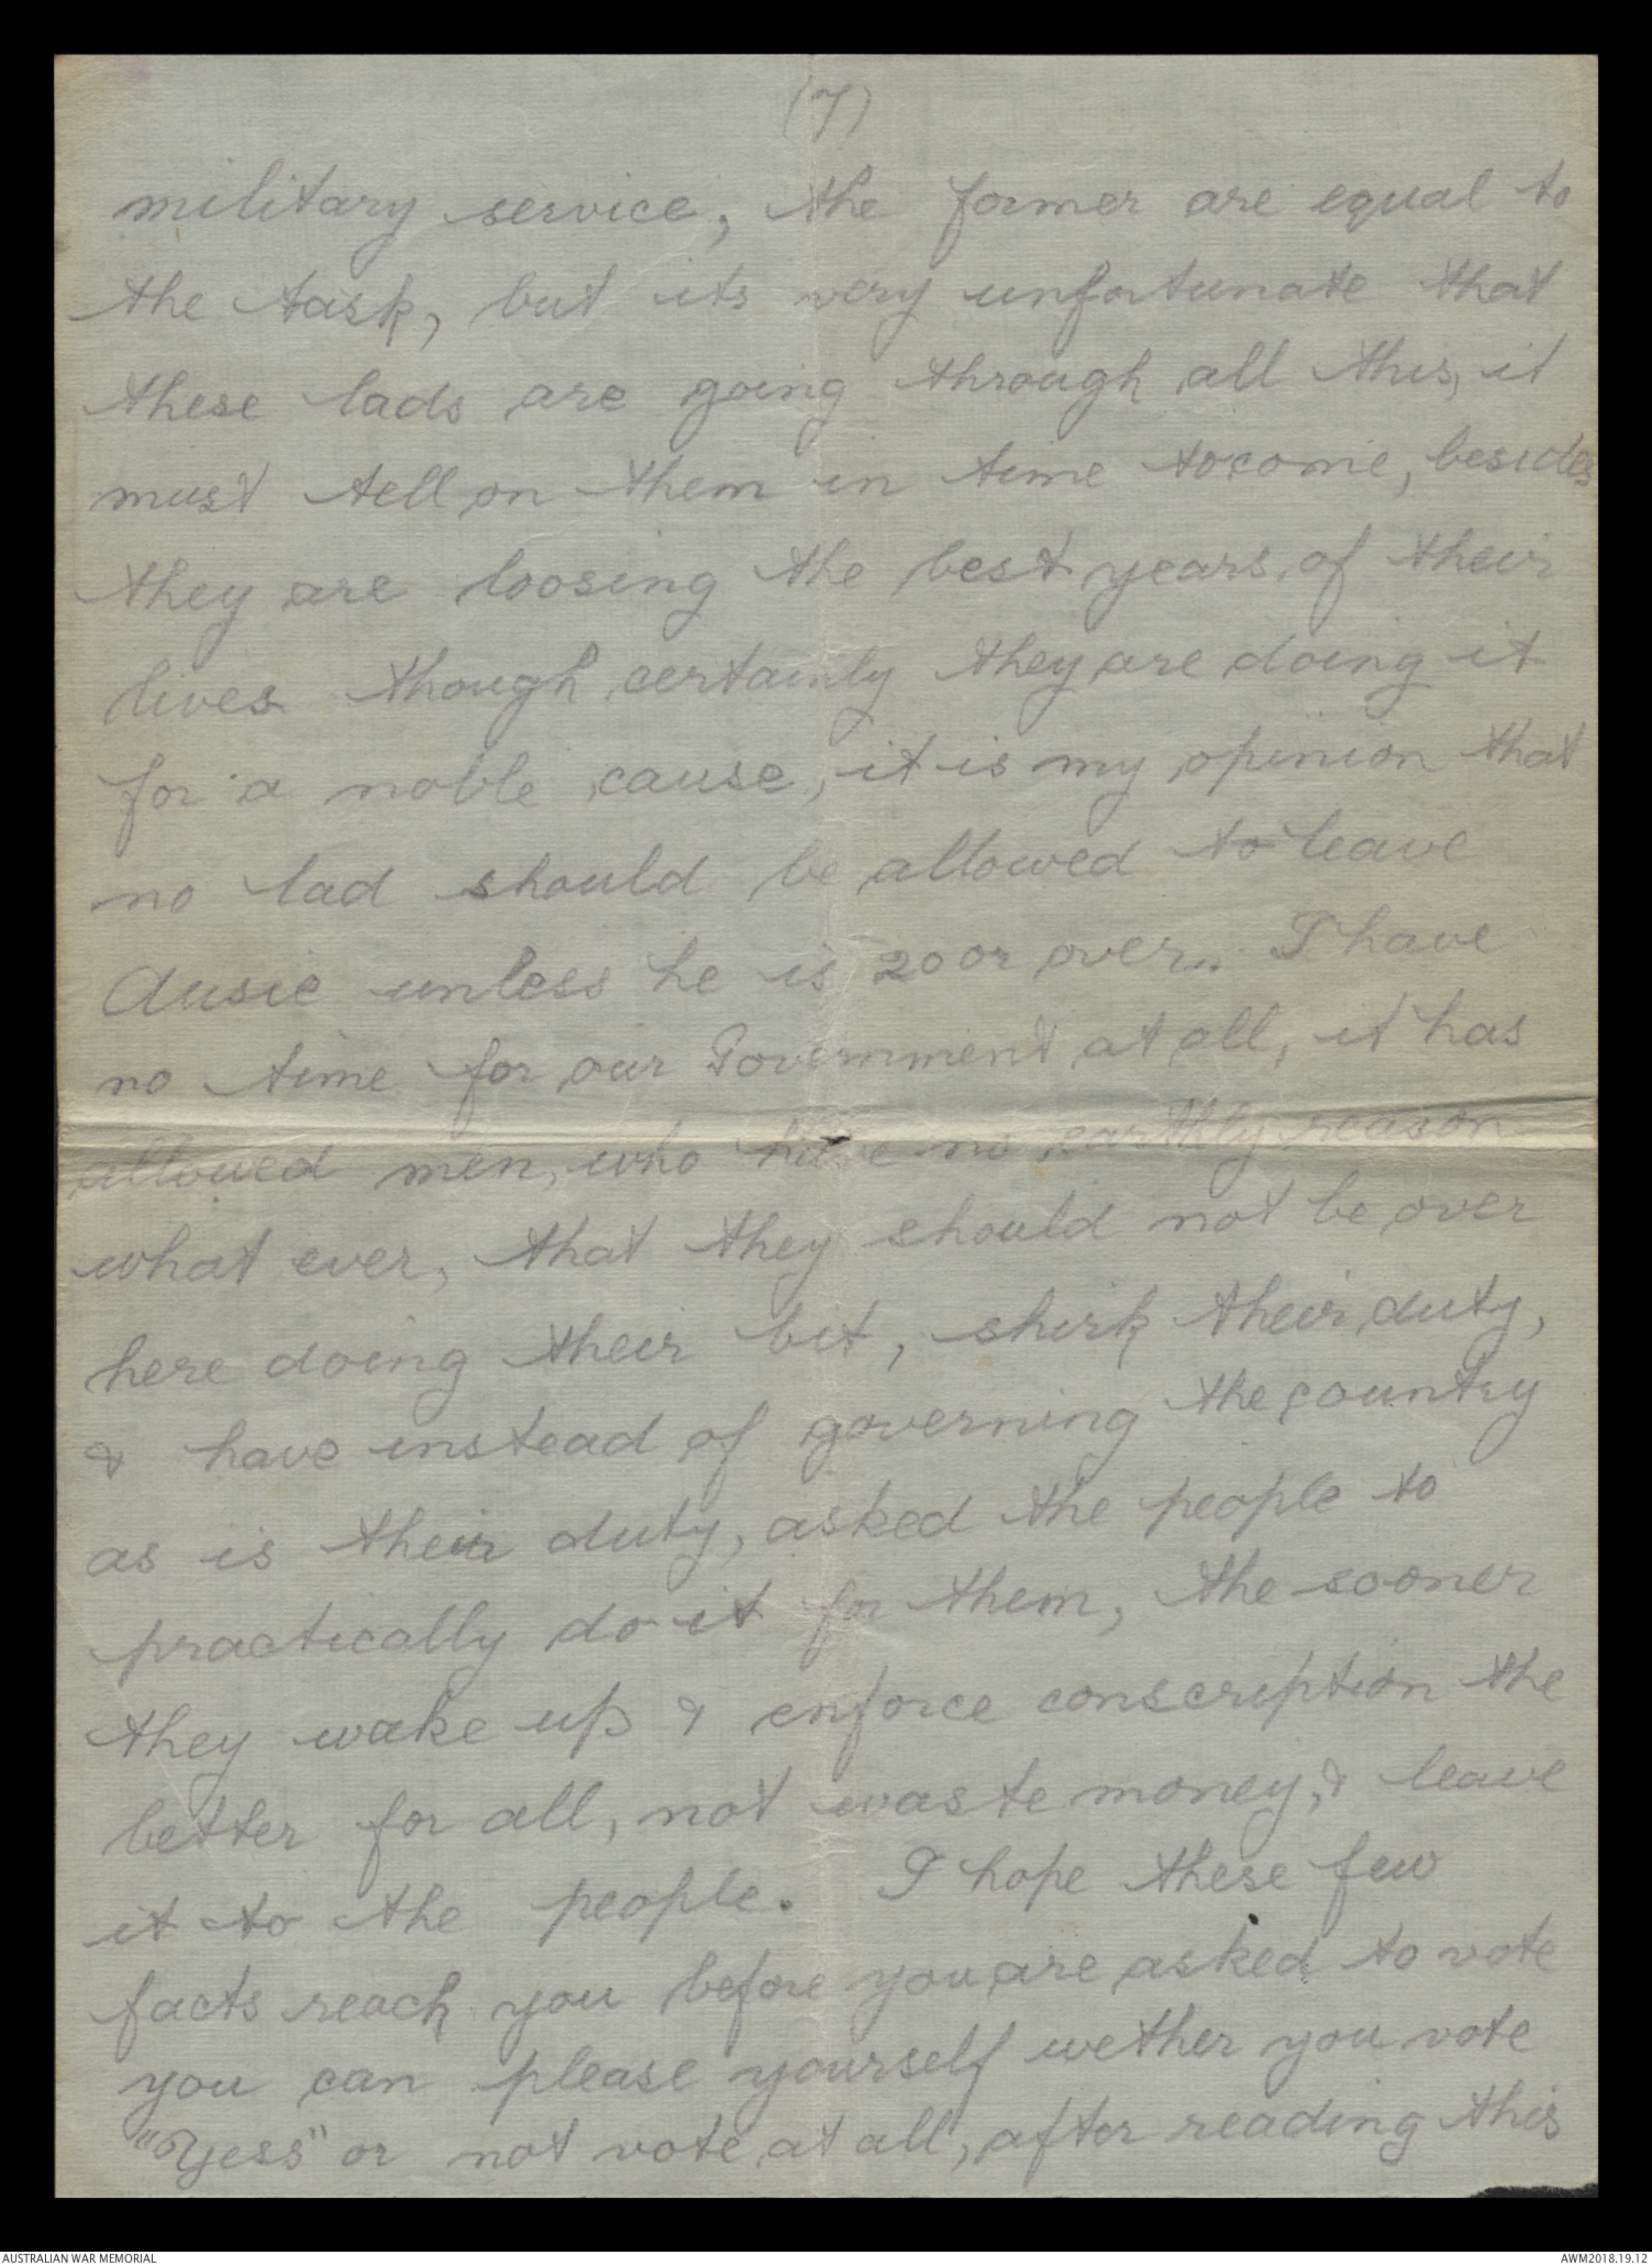 (7)
military service, the former are equal to
the task, but its very unfortunate that
these lads are going through all this, it
must tell on them in time to come, besides
they are loosing the best years of their
lives though certainly they are doing it
for a noble cause, it is my opinion that
no lad should be allowed to leave
Ausie unless he is 20 or over. I have
no time for our Government at all, it has
allowed men, who have no earthly reason
what ever, that they should not be over
here doing their bit, shirk their duty,
& have instead of governing the country
as is their duty, asked the people to
practically do it for them, the sooner
they wake up & enforce conscription the
better for all, not waste money, & leave
it to the people. I hope these few
facts reach you before you are asked to vote
you can please yourself wether you vote
"Yess" or not vote at all, after reading this
AUSTRALIAN WAR MEMORIAL
AWM2018.19.12